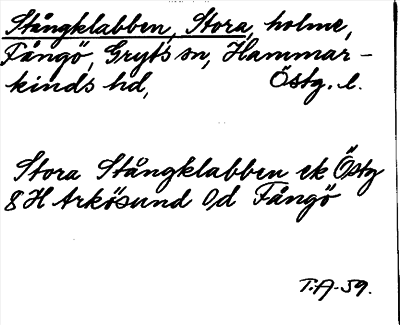 Stångklabben, Stora, holme,
Fångö, Gryts sn, Hammar-
kinds hd, Östg. l.
Stora Stångklabben ek Östg
8H Arkösund O/d Fångö
T.A-59.